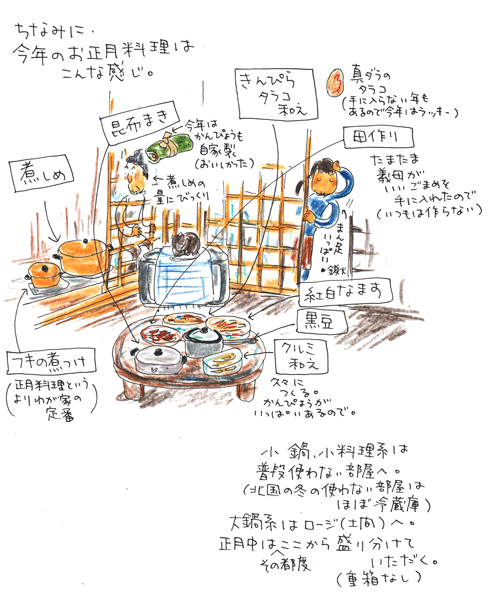 ちなみに・
今年のお正月料理は
こんな感じ。
きんぴら
タラコ
和え
真ダラの
タラコ
(手に入らない年も
あるので今年はラッキー)
昆布まき
今年は
かんぴょうも
自家製
(おいしかった)
田作り
たまたま
義母が
いいごまめを
手に入れたので
(いつもは作らない)
煮しめ
←煮しめの
量にびっくり
まん足
いっぱい
紅白なます
黒豆
クルミ
和え
久々に
つくる。
かんぴょうが
いっぱいあるので。
フキの煮つけ
(正月料理という
よりわが家の
定番)
小鍋、小料理系は
普段使わない部屋へ。
(北国の冬の使わない部屋は
ほぼ冷蔵庫)
大鍋系はロージ(土間)へ。
正月中はここから盛り分けて
その都度
いただく。
(重箱なし)